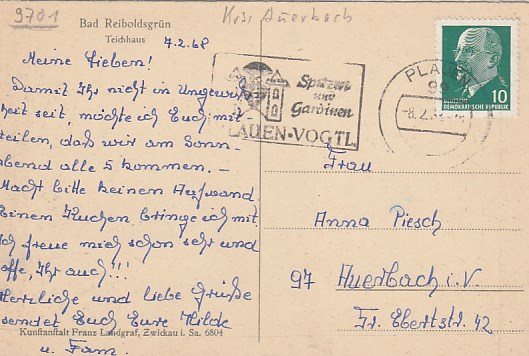 9701
Krs Auerbach
Bad Reiboldsgrün
Teichhaus
7.2.68
Meine Lieben!
Damit Ihr nicht in Ungewiß
heit seit, möchte ich Euch mit
teilen, daß wir am Sonn-
abend alle 5 kommen. -
Macht bitte keinen Aufwand
Einen Kuchen bringe ich mit
Ich freue mich schon sehr und
offe, Ihr auch!!!
Herzliche und liebe Grüße
sendet Euch Eure Hilde
u. Fam.
Kunstanstalt Franz Landgraf, Zwickau i. Sa. 6804
Spitzen
und
Gardinen
LAUEN·VOGTL
PLAUEN
99
-8.2.
10
DEUTSCHE
DEMOKRATISCHE REPUBLIK
Frau
Anna Piesch
97 Auerbach i. V.
Fr. Ebertstr. 42